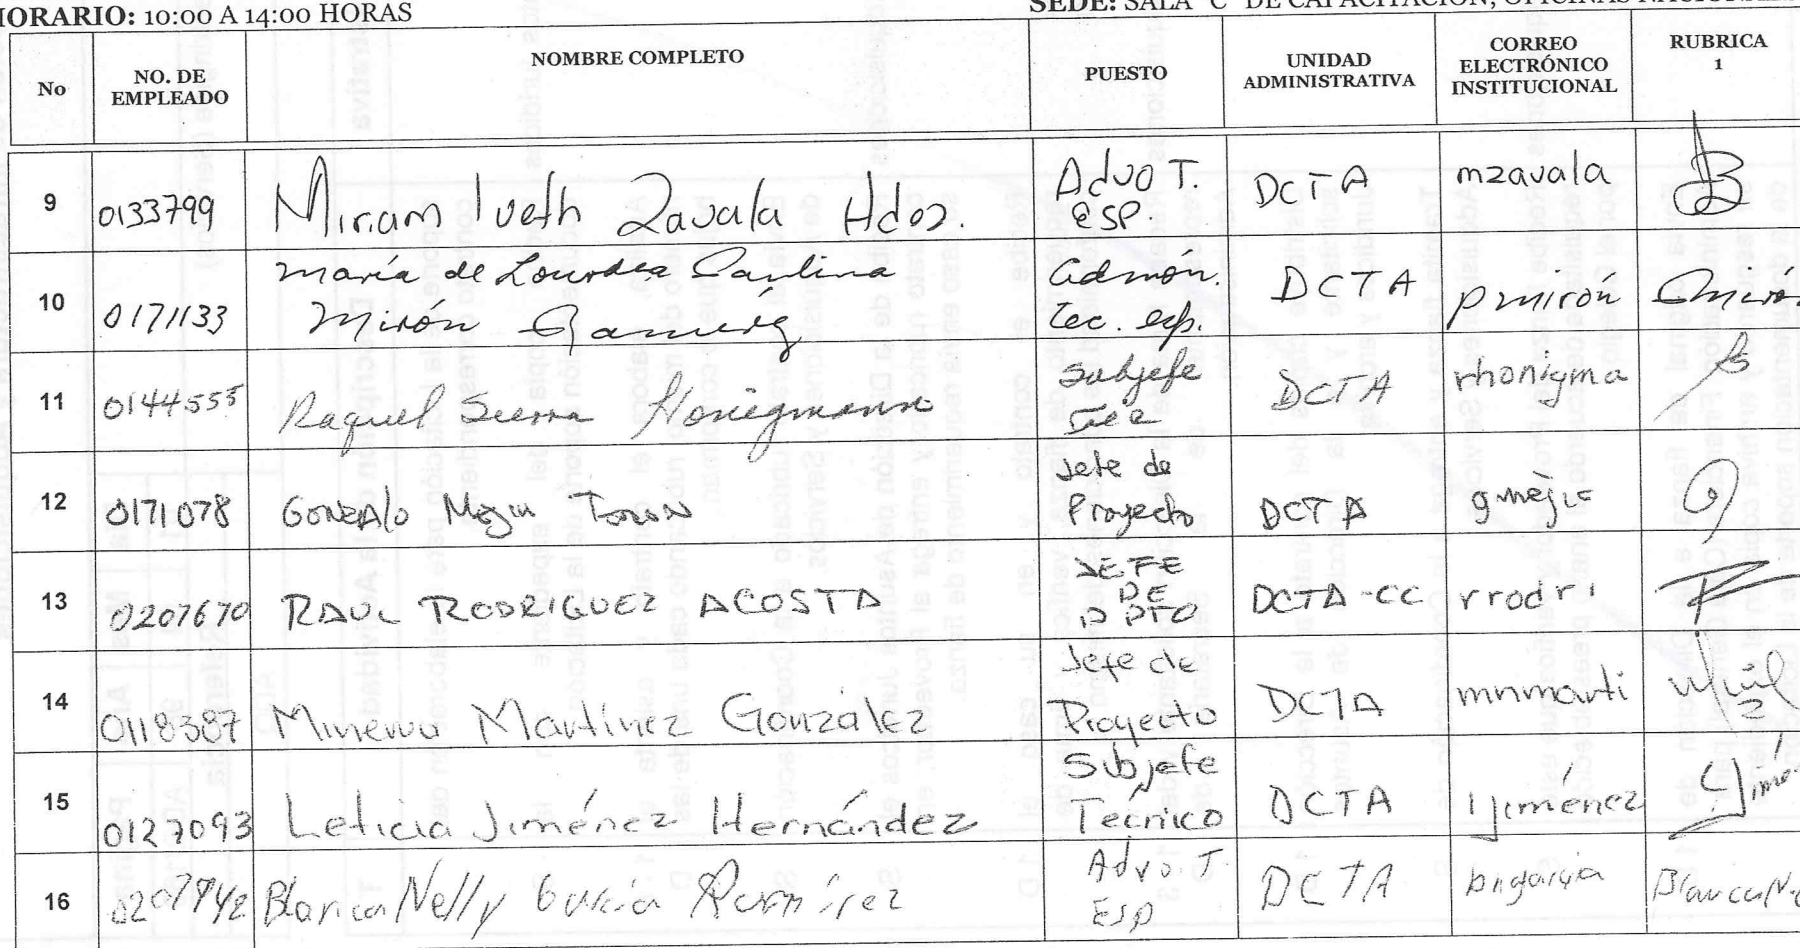 HORARIO: 10:00 A 14:00 HORAS
SEDE: SALA "C" DE CAPACITACIÓN, OFICINAS NACIONALES
No
NO. DE EMPLEADO
NOMBRE COMPLETO
PUESTO
UNIDAD ADMINISTRATIVA
CORREO ELECTRÓNICO INSTITUCIONAL
RUBRICA 1
9 0133799 Miriam Iveth Zavala Hdez. Advo T. ESP. DCTA mzavala
10 0171133 María de Lourdes Paulina Mirón Ramírez Admón. Tec. esp. DCTA pmirón
11 0144555 Raquel Sierra Honigmann Subjefe DCTA rhonigma
12 0171078 GONZAlo Jefe de Proyecto DCTA
13 0207670 RAUL RODRIGUEZ ACOSTA JEFE DE DPTO DCTA-CC rrodri
14 0118387 Minerva Martínez González Jefe de Proyecto DCTA mnmarti
15 0127093 Leticia Jiménez Hernández Subjefe Técnico DCTA ljiménez
16 Blanca Nelly García Ramírez Advo. T ESP DCTA bngarcia